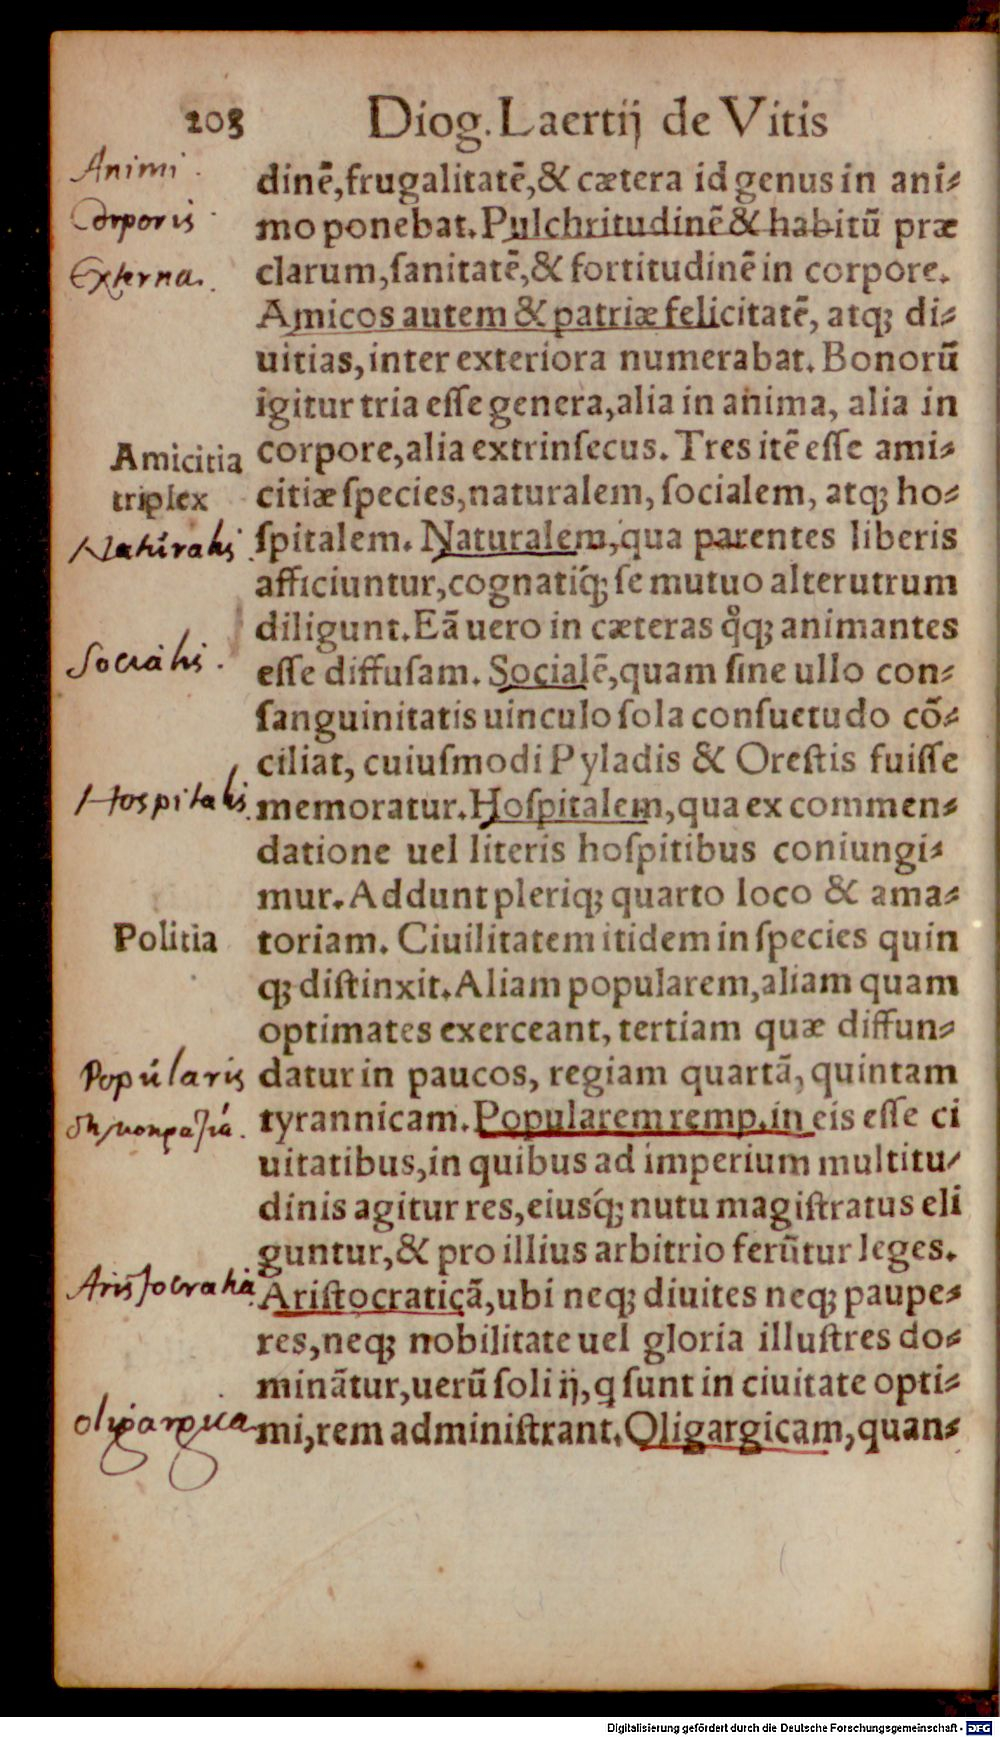 208 Diog. Laertij de Vitis
Animi.
dinē, frugalitatē, & cætera id genus in ani-
Corporis
mo ponebat. Pulchritudinē & habitū præ
Externa.
clarum, ſanitatē, & fortitudinē in corpore.
Amicos autem & patriæ felicitatē, atq; di-
uitias, inter exteriora numerabat. Bonorū
igitur tria eſſe genera, alia in anima, alia in
corpore, alia extrinſecus. Tres itē eſſe ami-
Amicitia
triplex
citiæ ſpecies, naturalem, ſocialem, atq; ho-
Naturalis
ſpitalem. Naturalem, qua parentes liberis
afficiuntur, cognatiq́; ſe mutuo alterutrum
diligunt. Eā uero in cæteras qͦq; animantes
Socialis.
eſſe diffuſam. Socialē, quam ſine ullo con-
ſanguinitatis uinculo ſola conſuetudo cō-
ciliat, cuiuſmodi Pyladis & Oreſtis fuiſſe
Hospitalis.
memoratur. Hoſpitalem, qua ex commen-
datione uel literis hoſpitibus coniungi-
mur. Addunt pleriq; quarto loco & ama-
Politia
toriam. Ciuilitatem itidem in ſpecies quin
q; diſtinxit. Aliam popularem, aliam quam
optimates exerceant, tertiam quæ diffun-
Popularis
datur in paucos, regiam quartā, quintam
δημοκρατία.
tyrannicam. Popularem remp. in eis eſſe ci
uitatibus, in quibus ad imperium multitu-
dinis agitur res, eiusq́; nutu magiſtratus eli
guntur, & pro illius arbitrio ferūtur leges.
Aristocratia.
Ariſtocraticā, ubi neq; diuites neq; paupe-
res, neq; nobilitate uel gloria illuſtres do-
minātur, uerū ſoli ij, q ſunt in ciuitate opti-
mi, rem adminiſtrant. Oligargicam, quan-
Digitalisierung gefördert durch die Deutsche Forschungsgemeinschaft - DFG